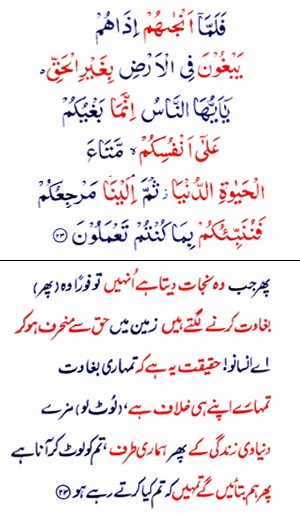 فَلَمَّآ اَنْجٰىهُمْ اِذَا هُمْ
يَبْغُوْنَ فِى الْاَرْضِ بِغَيْرِ الْحَقِّ ؕ
يٰٓاَيُّهَا النَّاسُ اِنَّمَا بَغْيُكُمْ
عَلٰٓى اَنْفُسِكُمْ ۙ مَّتَاعَ
الْحَيٰوةِ الدُّنْيَا ۫ ثُمَّ اِلَيْنَا مَرْجِعُكُمْ
فَنُنَبِّئُكُمْ بِمَا كُنْتُمْ تَعْمَلُوْنَ ﴿۲۳﴾
پھر جب وہ نجات دیتا ہے اُنہیں تو فورًا وہ (پھر)
بغاوت کرنے لگتے ہیں زمین میں حق سے منحرف ہو کر
اے انسانو! حقیقت یہ ہے کہ تمہاری بغاوت
تمہارے اپنے ہی خلاف ہے، (لُوٹ لو) مزے
دنیاوی زندگی کے پھر ہماری طرف ، تم کو لوٹ کر آنا ہے
پھر ہم بتائیں گے تمہیں کہ تم کیا کرتے رہے ہو ﴿۲۳﴾